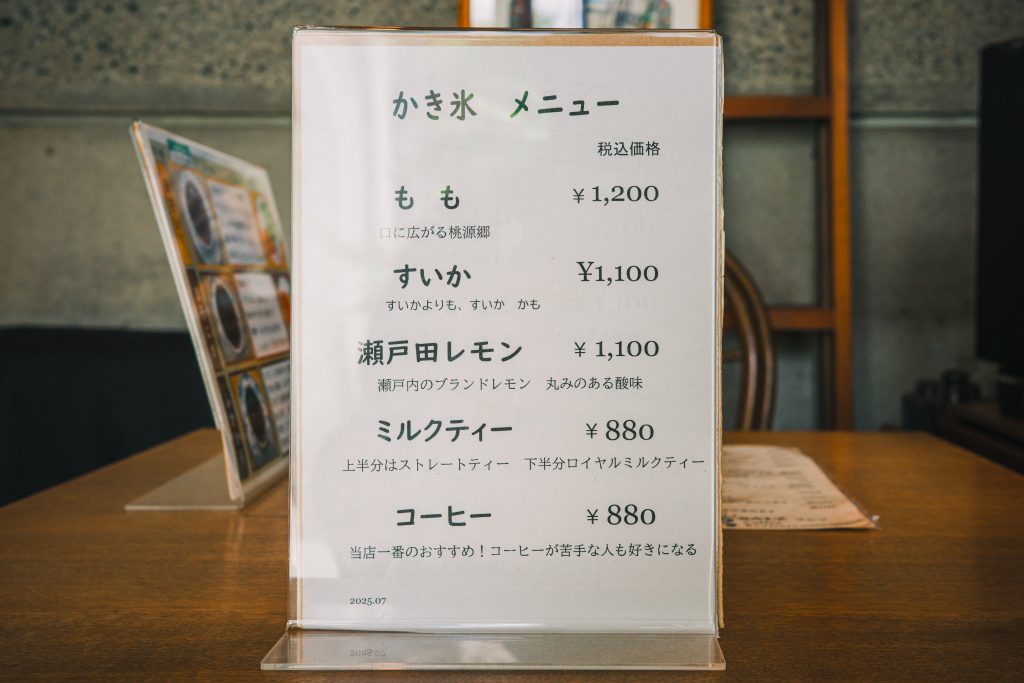 かき氷　メニュー
税込価格
もも　¥1,200
口に広がる桃源郷
すいか　¥1,100
すいかよりも、すいか　かも
瀬戸田レモン　¥1,100
瀬戸内のブランドレモン　丸みのある酸味
ミルクティー　¥880
上半分はストレートティー　下半分ロイヤルミルクティー
コーヒー　¥880
当店一番のおすすめ！コーヒーが苦手な人も好きになる
2025.07